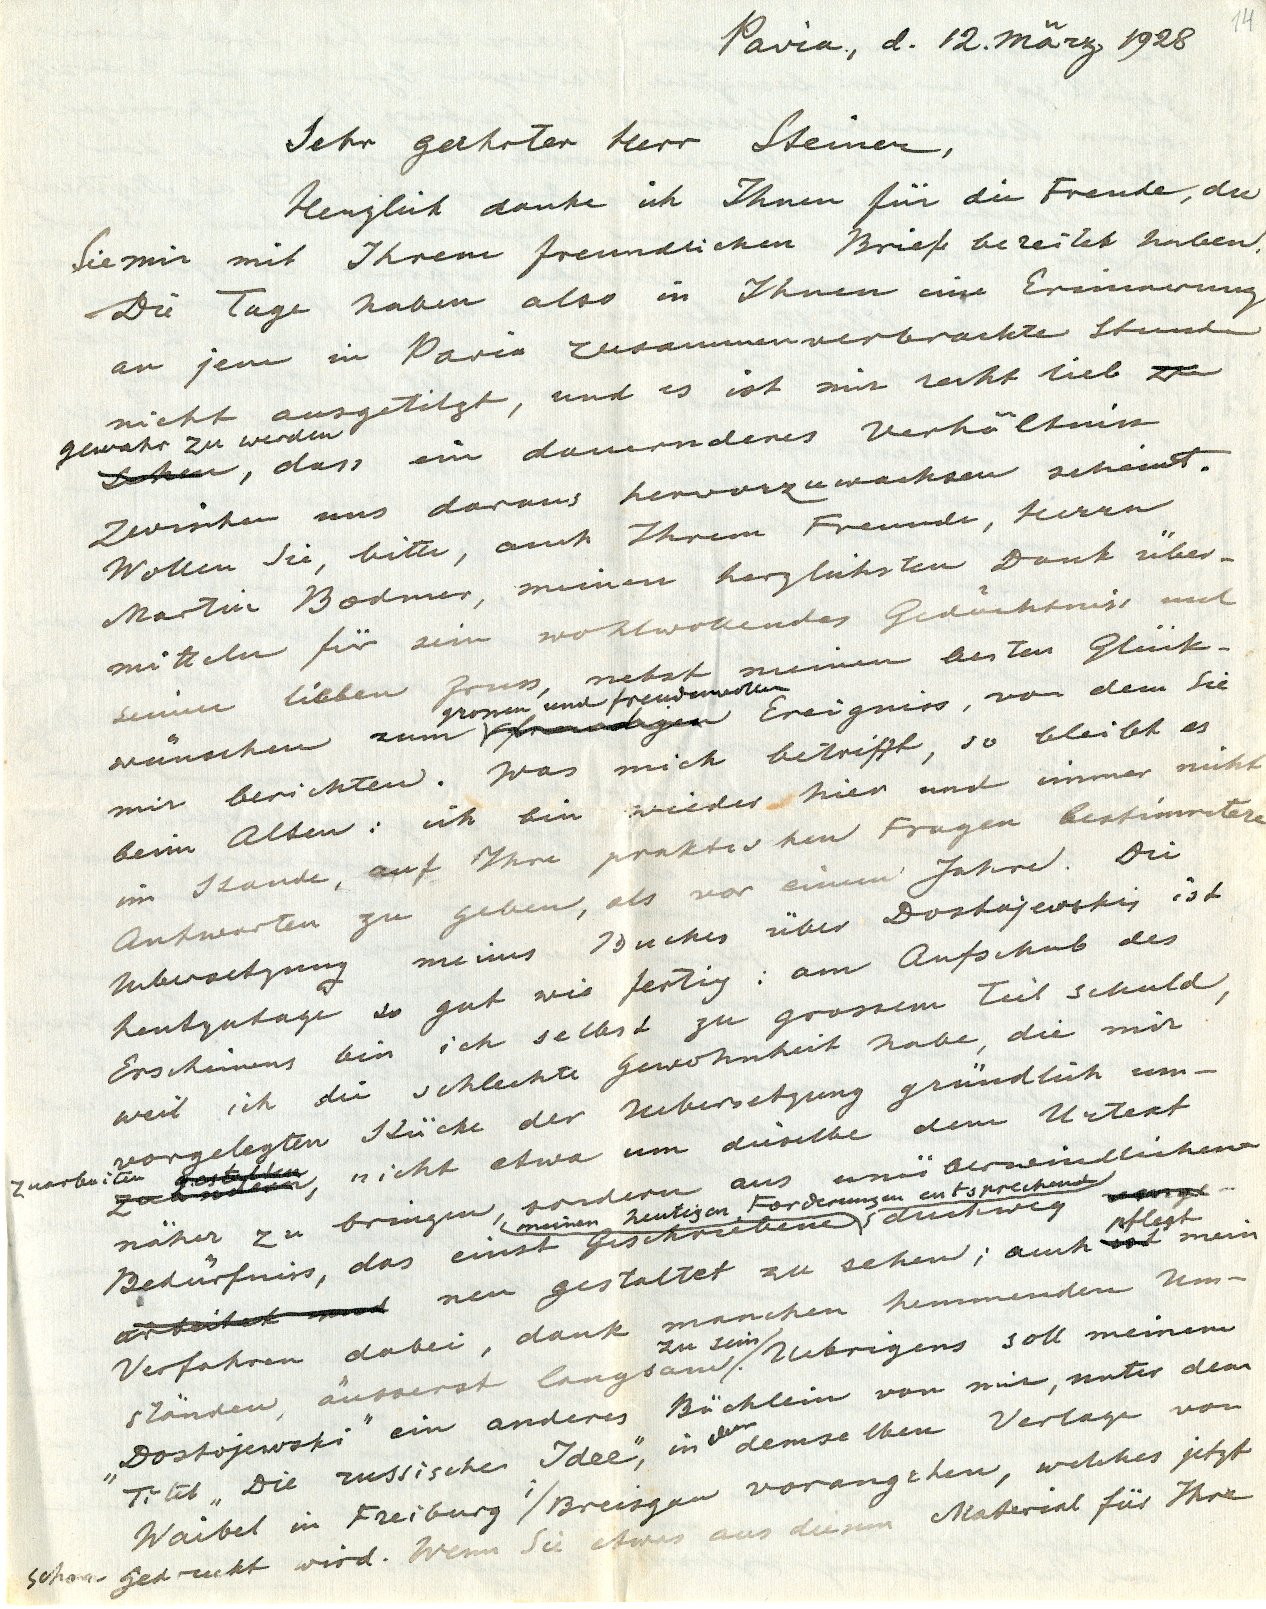 14
Pavia, d. 12. März 1928
Sehr geehrter Herr Steiner,
Herzlich danke ich Ihnen für die Freude, die
Sie mir mit Ihrem freundlichen Brief bereitet haben.
Die Tage haben also in Ihnen eine Erinnerung
an jene in Pavia zusammenverbrachte Stunde
nicht ausgetilgt, und es ist mir recht lieb zu
gewahr zu werden
sehen, dass ein dauernderes Verhältniss
zwischen uns daraus hervorzuwachsen scheint.
Wollen Sie, bitte, auch Ihrem Freunde, Herrn
Martin Bodmer, meinen herzlichsten Dank über-
mitteln für sein wohlwollendes Gedächtniss und
seinen lieben Gruss, nebst meinen besten Glück-
grossen und freudenvollen
wünschen zum freudigen Ereigniss, von dem Sie
mir berichten. Was mich betrifft, so bleibt es
beim Alten: ich bin wieder hier und immer nicht
im Stande, auf Ihre praktischen Fragen bestimmtere
Antworten zu geben, als vor einem Jahre. Die
Uebersetzung meines Buches über Dostojewskij ist
heutzutage so gut wie fertig: am Aufschub des
Erscheinens bin ich selbst zu grossem Teil schuld,
weil ich die schlechte Gewohnheit habe, die mir
vorgelegten Stücke der Uebersetzung gründlich um-
zuarbeiten gestalten
zuändern, nicht etwa um dieselbe dem Urtext
näher zu bringen, sondern aus unüberwindlichem
meinen heutigen Forderungen entsprechend
Bedürfniss, das einst Geschriebene durchweg
pflegt
arbeitet und neu gestaltet zu sehen; auch ist mein
Verfahren dabei, dank manchen hemmenden Um-
zu sein
ständen, äusserst langsam. Uebrigens soll meinem
„Dostojewski“ ein anderes Büchlein von mir, unter dem
Titel „Die russische Idee“, in demselben Verlage von
Waibel in Freiburg i/Breisgau vorangehen, welches jetzt
schon gedruckt wird. Wenn Sie etwas aus diesem Material für Ihre